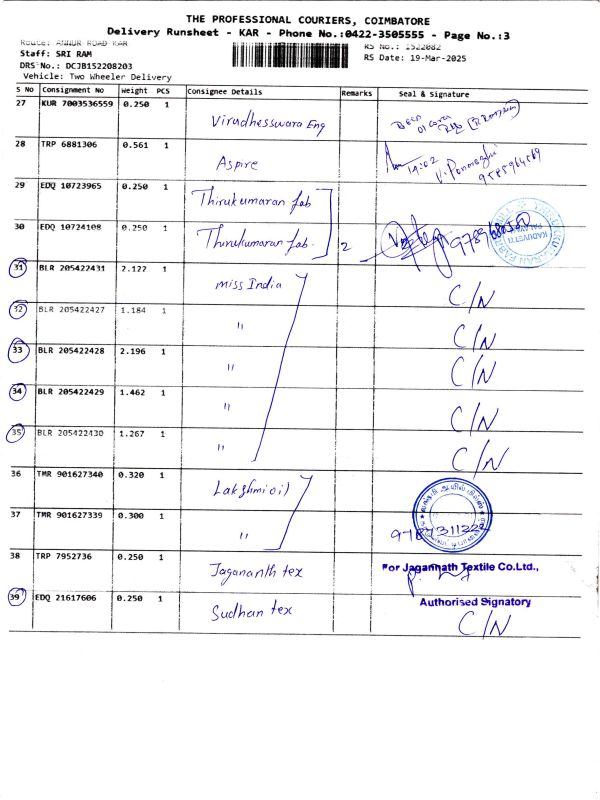 THE PROFESSIONAL COURIERS, COIMBATORE
Delivery Runsheet - KAR - Phone No.:0422-3505555 - Page No.:3
Route: ANNUR ROAD KAR
RS No.: 1522082
Staff: SRI RAM
RS Date: 19-Mar-2025
DRS No.: DCJB152208203
Vehicle: Two Wheeler Delivery
S No Consignment No Weight PCS Consignee Details Remarks Seal & Signature
27 KUR 7003536559 0.250 1 Virudhesswara Eng
28 TRP 6881306 0.561 1 Aspire 19:02
29 EDQ 10723965 0.250 1 Thirukumaran fab
30 EDQ 10724108 0.250 1 Thirukumaran fab. 2
31 BLR 205422431 2.122 1 miss India C/N
32 BLR 205422427 1.184 1 " C/N
33 BLR 205422428 2.196 1 " C/N
34 BLR 205422429 1.462 1 " C/N
35 BLR 205422430 1.267 1 " C/N
36 TMR 901627340 0.320 1 Lakshmi oil
37 TMR 901627339 0.300 1 "
38 TRP 7952736 0.250 1 Jagananth tex For Jagannath Textile Co.Ltd.,
Authorised Signatory
39 EDQ 21617606 0.250 1 Sudhan tex C/N